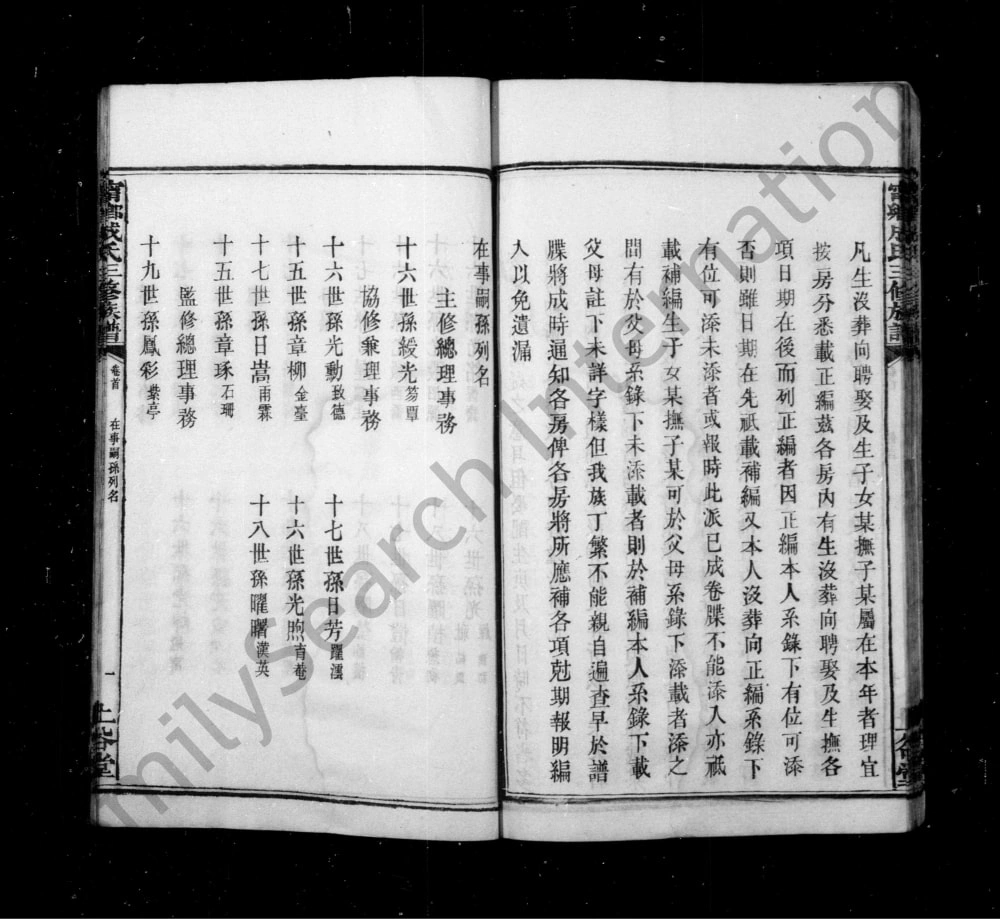 甯鄉成氏三修族譜
凡生沒葬向聘娶及生子女某撫子某屬在本年者理宜
按房分悉載正編茲各房內有生沒葬向聘娶及生撫各
項日期在後而列正編者因正編本人系錄下有位可添
否則雖日期在先祇載補編又本人沒葬向正編系錄下
有位可添未添者或報時此派已成卷牒不能添入亦祇
載補編生于女某撫子某可於父母系錄下添載者添之
間有於父母系錄下未添載者則於補編本人系錄下載
父母註下未詳字樣但我族丁繁不能親自遍查早於譜
牒將成時通知各房俾各房將所應補各項尅期報明編
人以免遺漏
在事嗣孫列名
主修總理事務
十六世孫綬光 笏覃
協修兼理事務
十六世孫光勳 致德 十七世孫日芳 躍溪
十五世孫章柳 金臺 十六世孫光煦 肓菴
十七世孫日嵩 甫霖 十八世孫曜曙 漢英
十五世孫章琢 石珊
監修總理事務
十九世孫鳳彩 紫亭
甯鄉成氏三修族譜 卷首 在事嗣孫列名 一 上谷堂
milySearch Internation